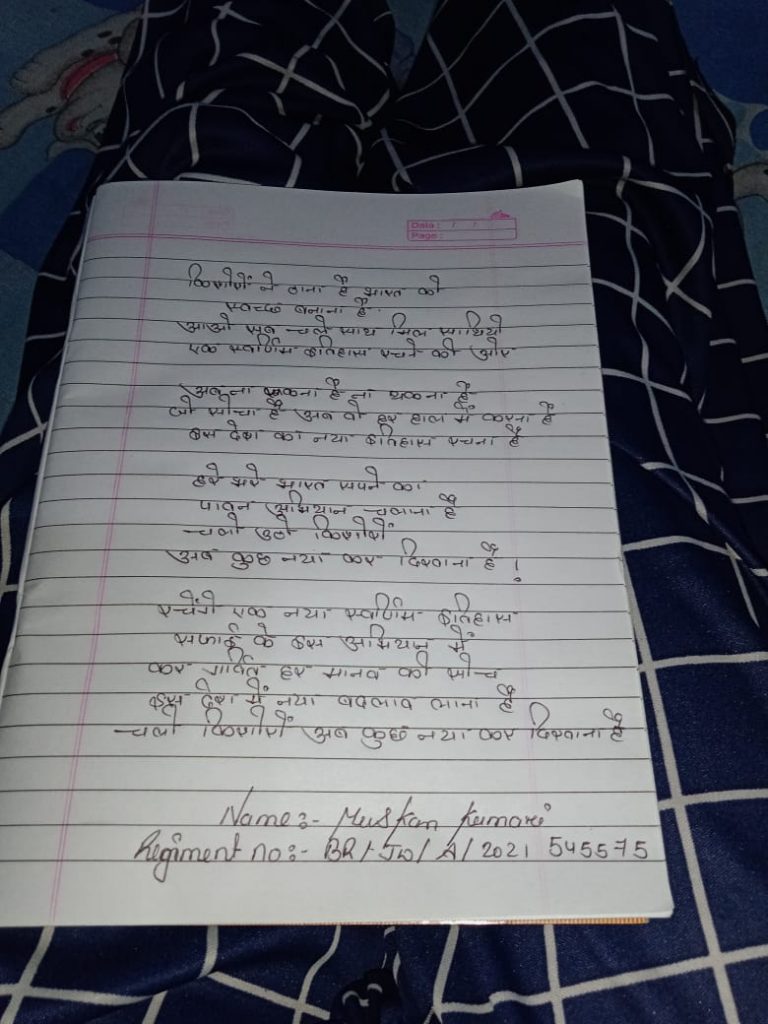 Date : / /
Page :
किशोरों ने ठाना है भारत को
स्वच्छ बनाना है.
आओ सब चले साथ मिल साथियों
एक स्वर्णिम इतिहास रचने की ओर
अब ना रूकना है ना थकना है
जो सोचा है अब वो हर हाल में करना है
इस देश का नया इतिहास रचना है
हरे भरे भारत सपने का
पावन अभियान चलाना है
चलो उठो किशोरों
अब कुछ नया कर दिखाना है!
रचेंगे एक नया स्वर्णिम इतिहास
सफाई के इस अभियान में
कर गर्वित हर मानव की सोच
इस देश में नया बदलाव लाना है
चलो किशोरों अब कुछ नया कर दिखाना है
Name:- Muskan Kumari
Regiment no:- BR/JW/A/2021 545575